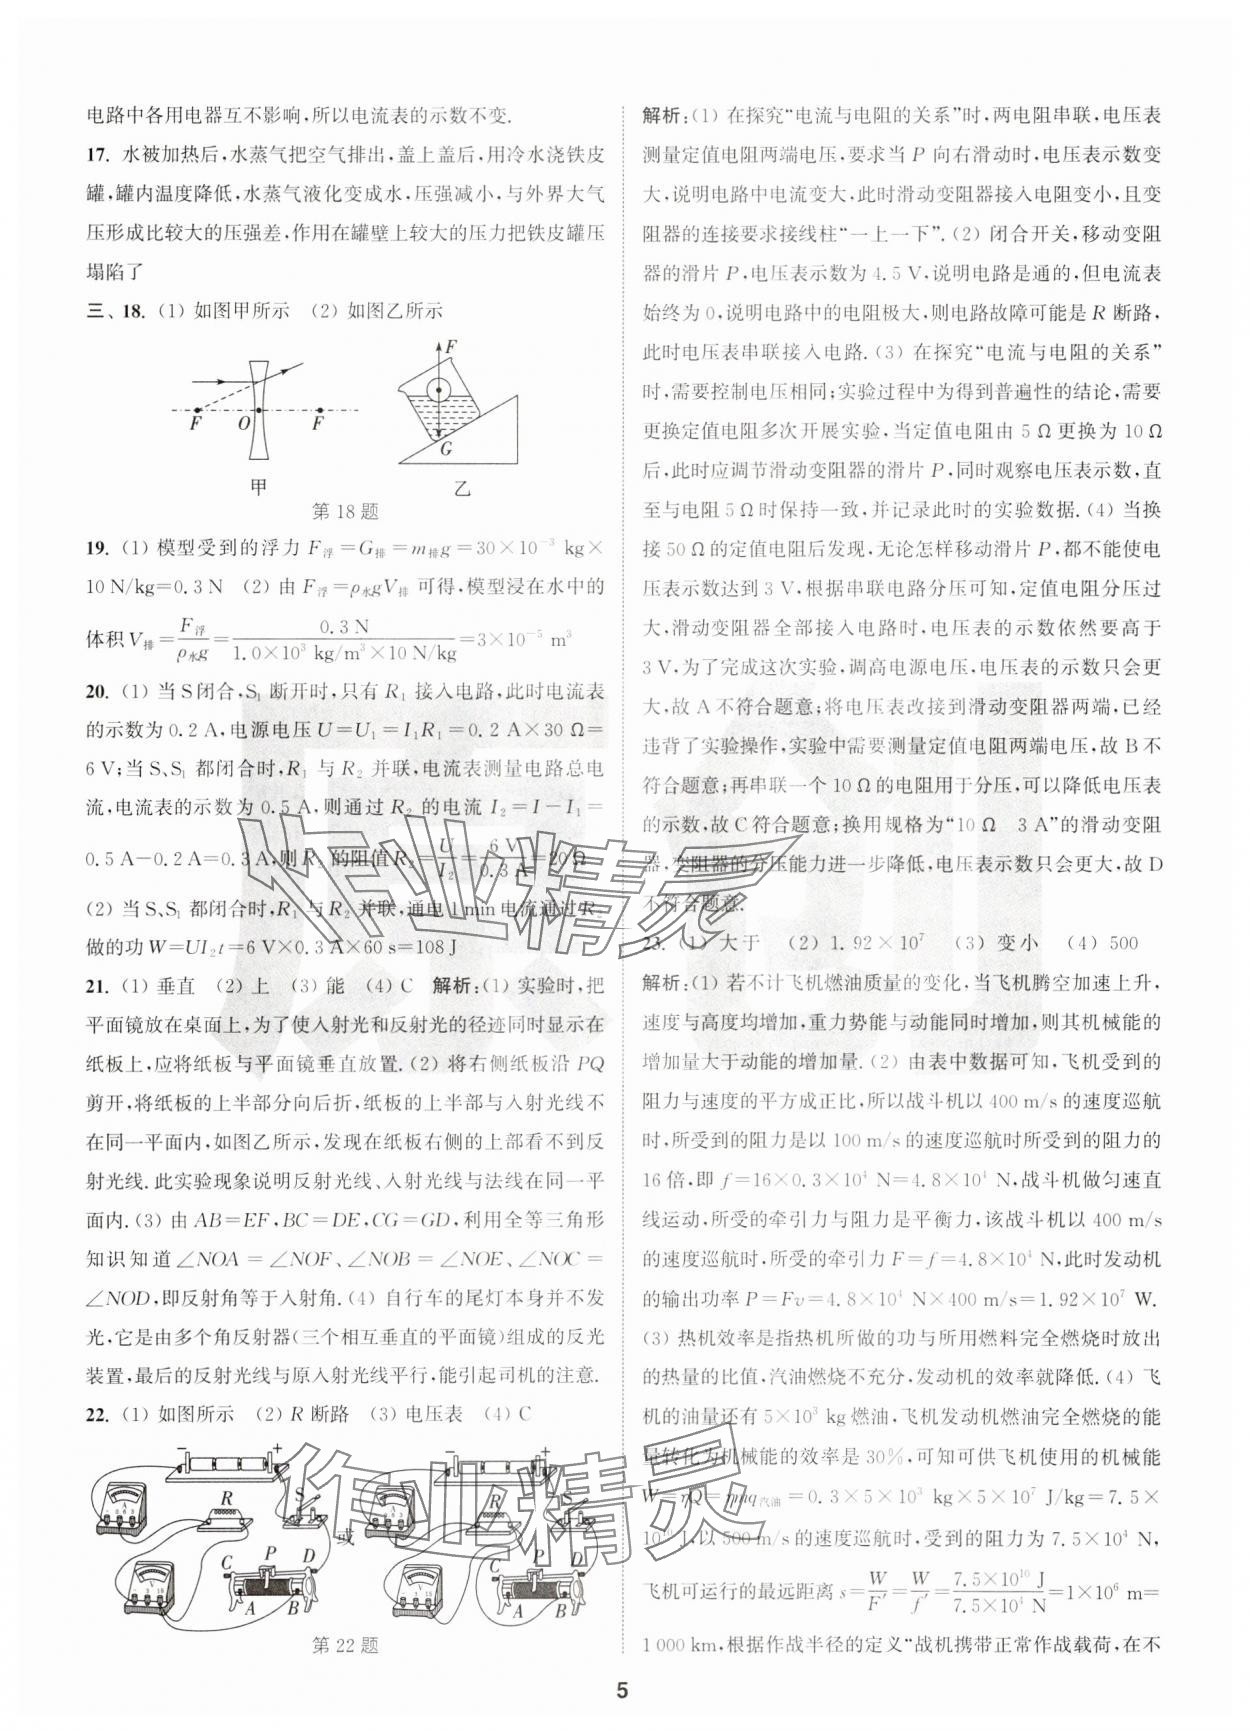 电路中各用电器互不影响,所以电流表的示数不变.
17. 水被加热后,水蒸气把空气排出,盖上盖后,用冷水浇铁皮
罐,罐内温度降低,水蒸气液化变成水,压强减小,与外界大气
压形成比较大的压强差,作用在罐壁上较大的压力把铁皮罐压
塌陷了
三、18. (1) 如图甲所示 (2) 如图乙所示
F O F
甲
F
G
乙
第18题
19. (1) 模型受到的浮力 F浮=G排=m排g=30×10⁻³ kg×
10 N/kg=0.3 N (2) 由 F浮=ρ水gV排 可得,模型浸在水中的
体积 V排=F浮/ρ水g=0.3 N/(1.0×10³ kg/m³×10 N/kg)=3×10⁻⁵ m³
20. (1) 当S闭合,S₁ 断开时,只有 R₁ 接入电路,此时电流表
的示数为 0.2 A,电源电压 U=U₁=I₁R₁=0.2 A×30 Ω=
6 V;当 S、S₁ 都闭合时,R₁ 与 R₂ 并联,电流表测量电路总电
流,电流表的示数为 0.5 A,则通过 R₂ 的电流 I₂=I-I₁=
0.5 A-0.2 A=0.3 A,则 R₂ 的阻值 R₂=U/I₂=6 V/0.3 A=20 Ω
(2) 当 S、S₁ 都闭合时,R₁ 与 R₂ 并联,通电 1 min 电流通过 R₂
做的功 W=UI₂t=6 V×0.3 A×60 s=108 J
21. (1) 垂直 (2) 上 (3) 能 (4) C 解析:(1) 实验时,把
平面镜放在桌面上,为了使入射光和反射光的径迹同时显示在
纸板上,应将纸板与平面镜垂直放置.(2) 将右侧纸板沿 PQ
剪开,将纸板的上半部分向后折,纸板的上半部与入射光线不
在同一平面内,如图乙所示,发现在纸板右侧的上部看不到反
射光线.此实验现象说明反射光线、入射光线与法线在同一平
面内.(3) 由 AB=EF,BC=DE,CG=GD,利用全等三角形
知识知道∠NOA=∠NOF、∠NOB=∠NOE、∠NOC=
∠NOD,即反射角等于入射角.(4) 自行车的尾灯本身并不发
光,它是由多个角反射器(三个相互垂直的平面镜)组成的反光
装置,最后的反射光线与原入射光线平行,能引起司机的注意.
22. (1) 如图所示 (2) R 断路 (3) 电压表 (4) C
- +
A R S
V C P D
A B
或
- +
R S
V C P D
A B
第22题
解析:(1) 在探究“电流与电阻的关系”时,两电阻串联,电压表
测量定值电阻两端电压,要求当 P 向右滑动时,电压表示数变
大,说明电路中电流变大,此时滑动变阻器接入电阻变小,且变
阻器的连接要求接线柱“一上一下”.(2) 闭合开关,移动变阻
器的滑片 P,电压表示数为 4.5 V,说明电路是通的,但电流表
始终为 0,说明电路中的电阻极大,则电路故障可能是 R 断路,
此时电压表串联接入电路.(3) 在探究“电流与电阻的关系”
时,需要控制电压相同;实验过程中为得到普遍性的结论,需要
更换定值电阻多次开展实验,当定值电阻由 5 Ω 更换为 10 Ω
后,此时应调节滑动变阻器的滑片 P,同时观察电压表示数,直
至与电阻 5 Ω 时保持一致,并记录此时的实验数据.(4) 当换
接 50 Ω 的定值电阻后发现,无论怎样移动滑片 P,都不能使电
压表示数达到 3 V,根据串联电路分压可知,定值电阻分压过
大,滑动变阻器全部接入电路时,电压表的示数依然要高于
3 V,为了完成这次实验,调高电源电压,电压表的示数只会更
大,故 A 不符合题意;将电压表改接到滑动变阻器两端,已经
违背了实验操作,实验中需要测量定值电阻两端电压,故 B 不
符合题意;再串联一个 10 Ω 的电阻用于分压,可以降低电压表
的示数,故 C 符合题意;换用规格为“10 Ω 3 A”的滑动变阻
器,变阻器的分压能力进一步降低,电压表示数只会更大,故 D
不符合题意.
23. (1) 大于 (2) 1.92×10⁷ (3) 变小 (4) 500
解析:(1) 若不计飞机燃油质量的变化,当飞机腾空加速上升,
速度与高度均增加,重力势能与动能同时增加,则其机械能的
增加量大于动能的增加量.(2) 由表中数据可知,飞机受到的
阻力与速度的平方成正比,所以战斗机以 400 m/s 的速度巡航
时,所受到的阻力是以 100 m/s 的速度巡航时所受到的阻力的
16 倍,即 f=16×0.3×10⁴ N=4.8×10⁴ N,战斗机做匀速直
线运动,所受的牵引力与阻力是平衡力,该战斗机以 400 m/s
的速度巡航时,所受的牵引力 F=f=4.8×10⁴ N,此时发动机
的输出功率 P=Fv=4.8×10⁴ N×400 m/s=1.92×10⁷ W.
(3) 热机效率是指热机所做的功与所用燃料完全燃烧时放出
的热量的比值,汽油燃烧不充分,发动机的效率就降低.(4) 飞
机的油量还有 5×10³ kg 燃油,飞机发动机燃油完全燃烧的能
量转化为机械能的效率是 30%,可知可供飞机使用的机械能
W=ηQ=ηmq汽油=0.3×5×10³ kg×5×10⁷ J/kg=7.5×
10¹⁰ J,以 500 m/s 的速度巡航时,受到的阻力为 7.5×10⁴ N,
飞机可运行的最远距离 s=W/F′=W/f′=7.5×10¹⁰ J/7.5×10⁴ N=1×10⁶ m=
1 000 km,根据作战半径的定义“战机携带正常作战载荷,在不
原创
作业精灵
作业精灵
5